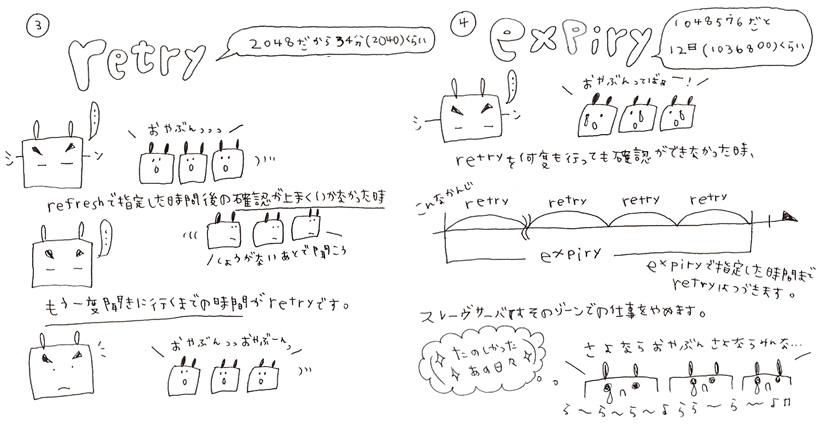 ③
retry
2048だから34分(2040)くらい
おやぶんっっっ
シーン
refreshで指定した時間後の確認が上手くいかなかった時
しょうがないあとで聞こう
もう一度聞きに行くまでの時間がretryです。
おやぶんっっおやぶーんっ
④
expiry
1048576だと
12日(1036800)くらい
おやぶんってばぁー!
シーン
retryを何度も行っても確認ができなかった時、
こんなかんじ
retry retry retry retry
expiry
expiryで指定した時間まで
retryはつづきます。
スレーヴサーバはそのゾーンでの仕事をやめます。
たのしかった
あの日々
さよなら おやぶん さよなら みんな…
ら〜ら〜ら〜♪らら〜ら〜♪♫